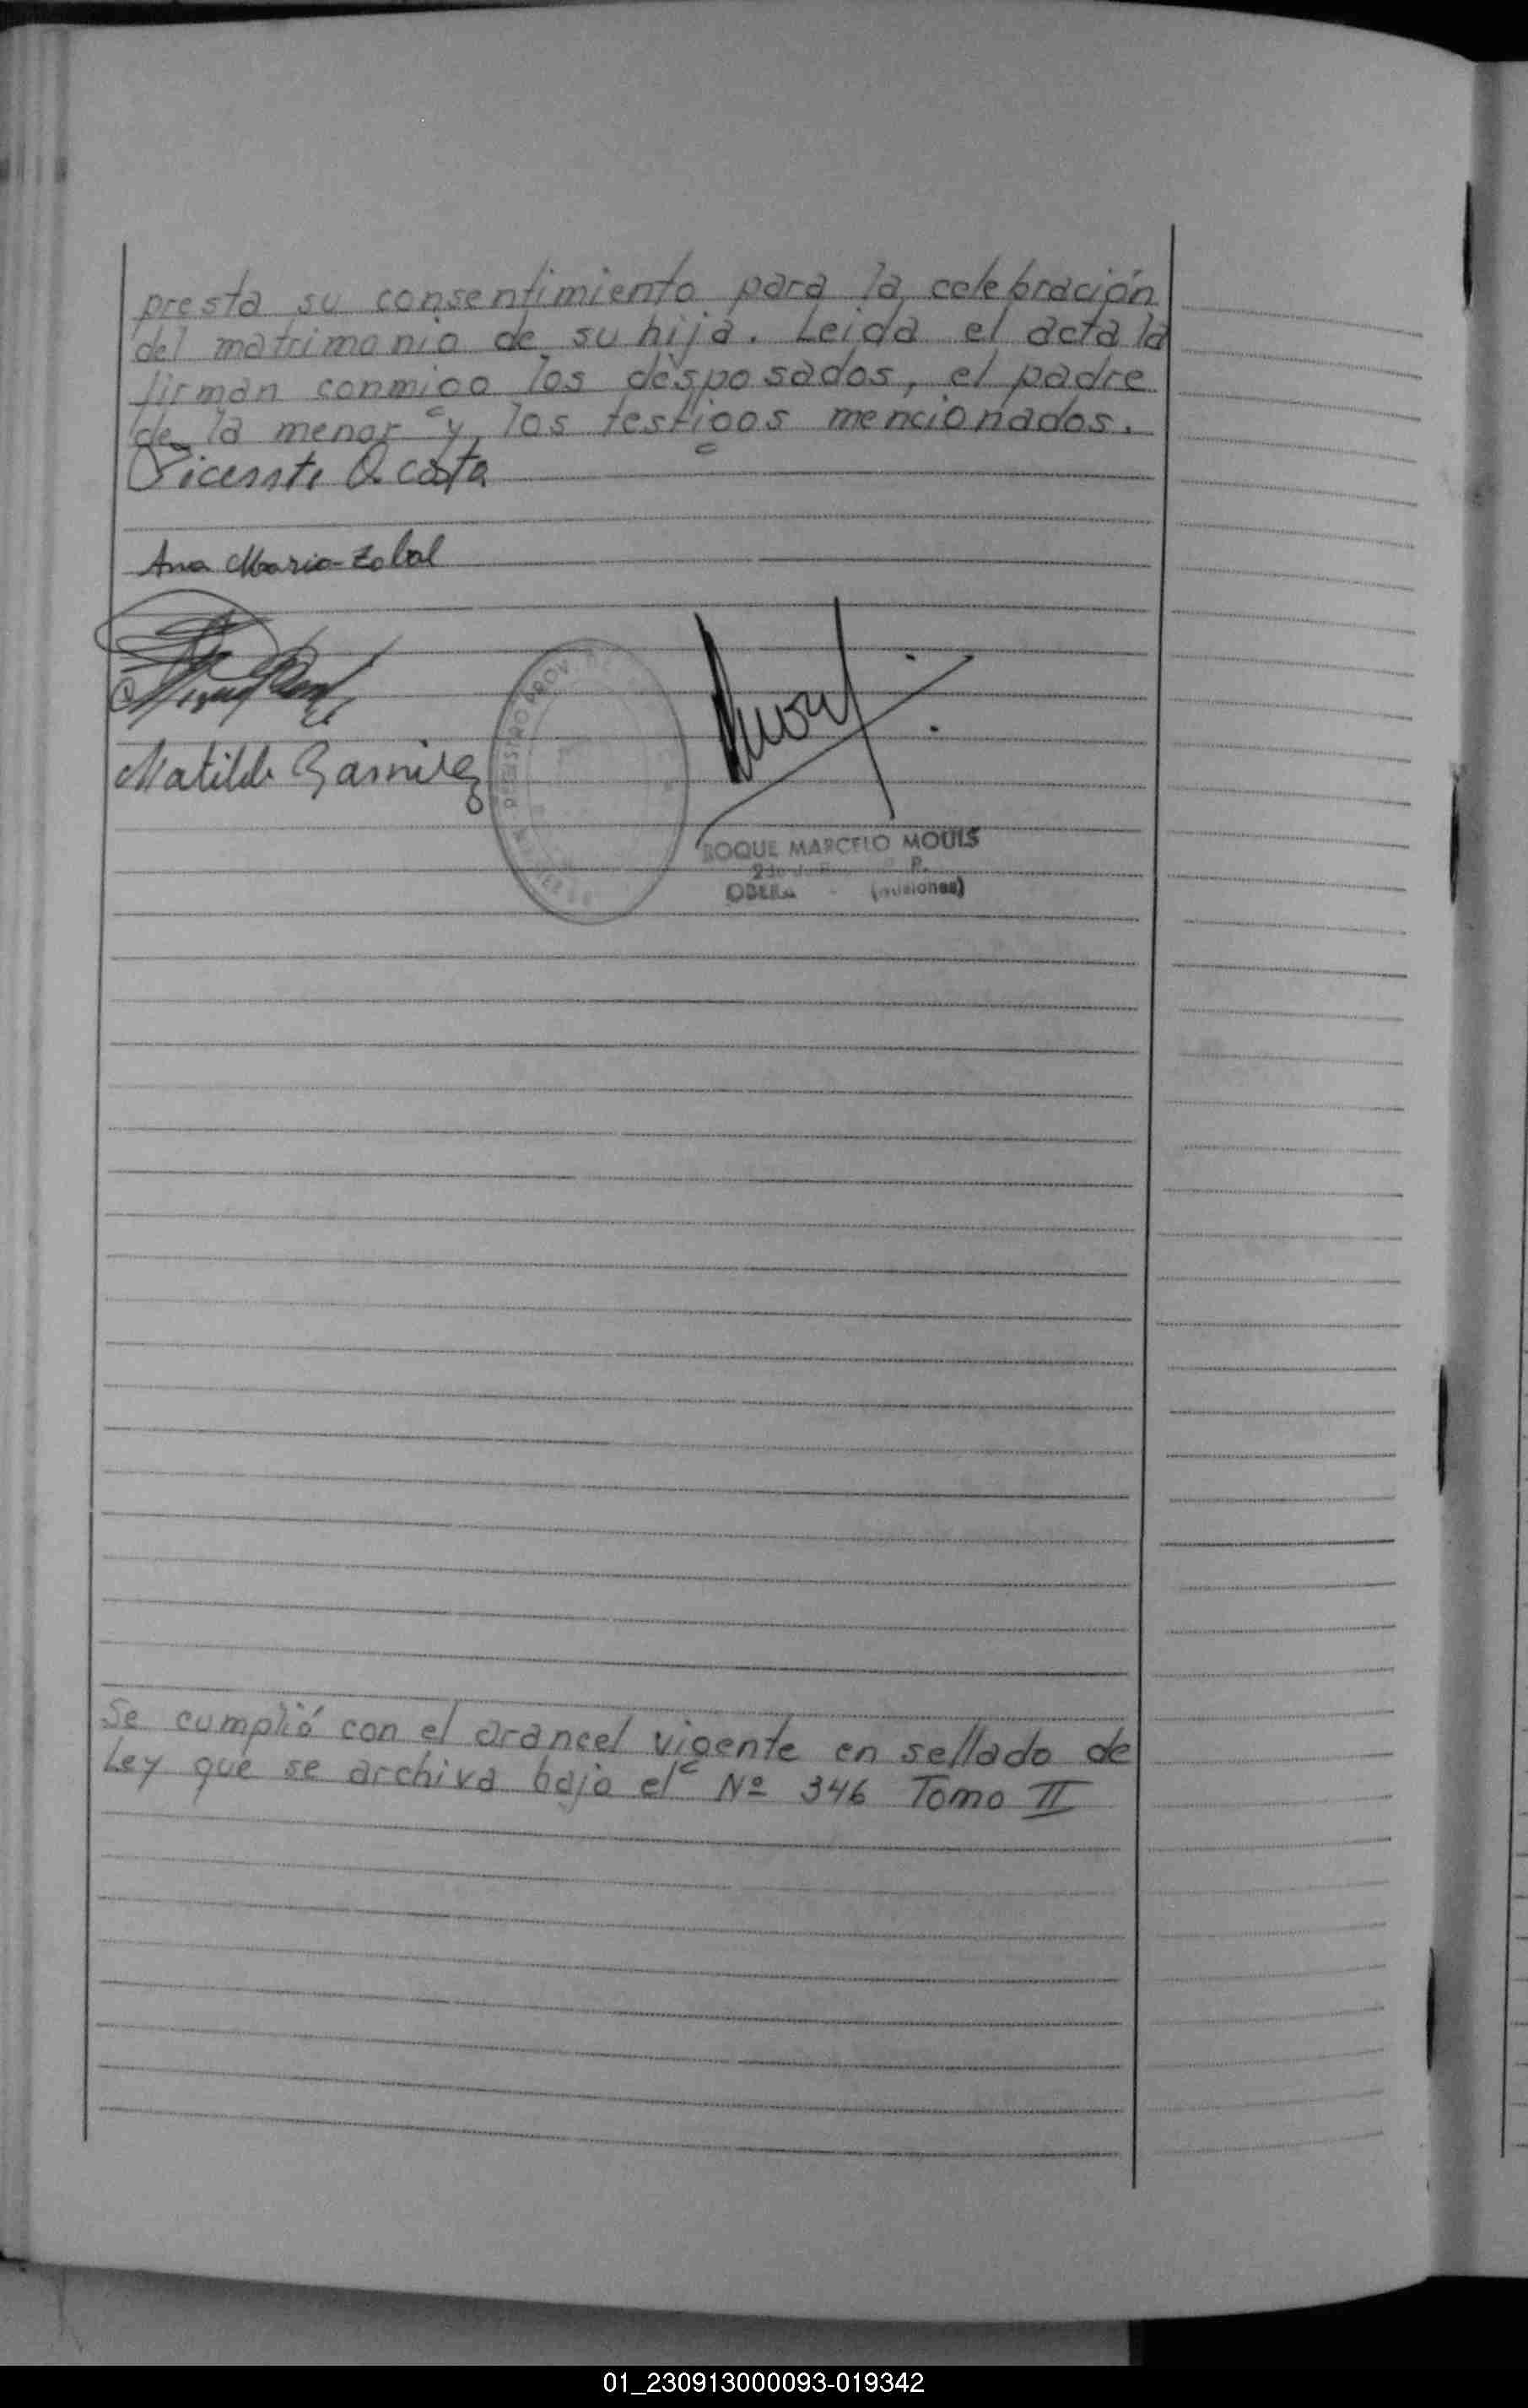 presta su consentimiento para la celebración
del matrimonio de su hija. Leida el acta la
firman conmigo los desposados, el padre
de la menor y los testigos mencionados.
Vicente Acosta
Ana Maria Zobal
Matilde Ramirez
REGISTRO PROV.
ROQUE MARCELO MOUIS
OBERA - (Misiones)
Se cumplió con el arancel vigente en sellado de
Ley que se archiva bajo el Nº 346 Tomo II
01_230913000093-019342